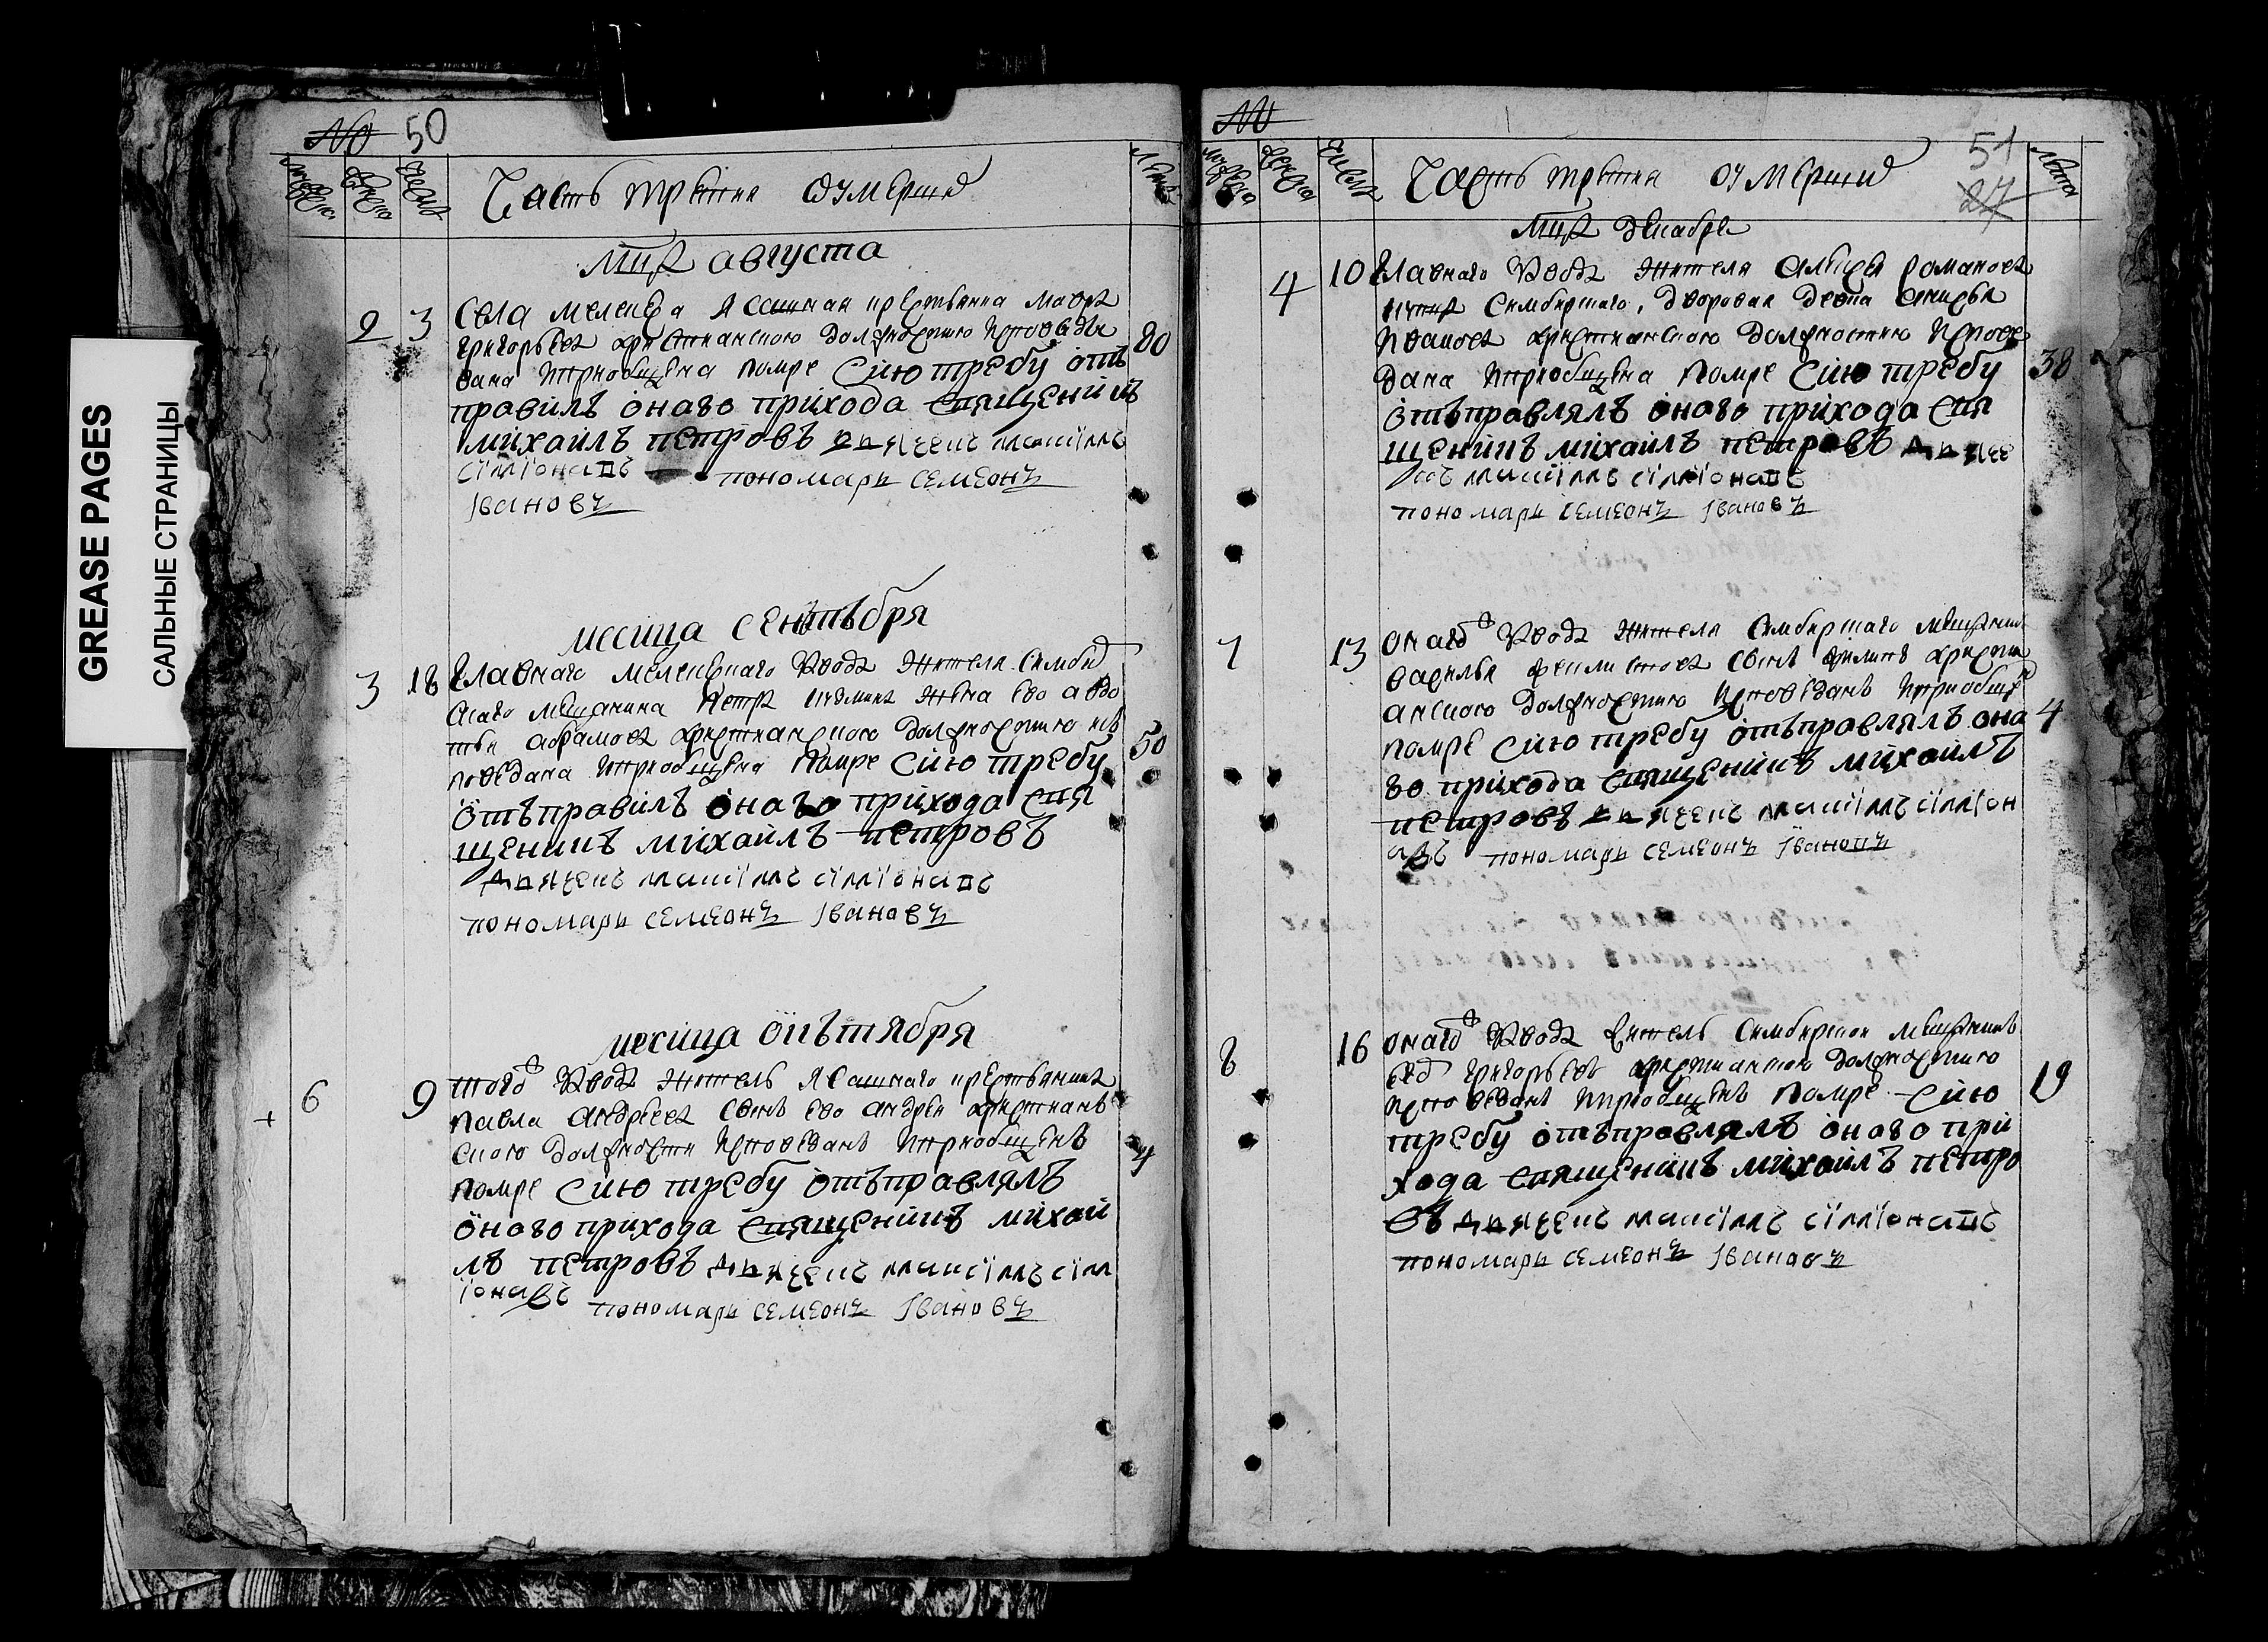 GREASE PAGES
САЛЬНЫЕ СТРАНИЦЫ
№ 50
мужеска женска число Часть третия о умерших лета
августа
2 3 Села мелекеса ясашная крестьянка Мавра
григорьева християнскою должностию исповеда 80
вана и приобщена помре сию требу отъ
правилъ онаго прихода священникъ
михаилъ петровъ максимъ
симионовъ пономарь семеонъ
Iвановъ
месица сентебря
3 18 Главнаго мелекескаго завода жителя симбир
скаго мещанина Петра жена ево авдо
тья абрамова християнскою должностию ис 50
поведана и приобщена помре сию требу
отъправилъ онаго прихода свя
щенникъ михаилъ петровъ
максимъ симионовъ
пономарь семеонъ Iвановъ
месица октября
6 9 того завода житель ясашнаго крестьянина
Павла Андреева сынъ ево андрей християнъ
скою должности исповеданъ и приобщенъ 4
помре сию требу отъправлялъ
онаго прихода священникъ михаи
лъ петровъ максимъ сим
ионовъ пономарь семеонъ Iвановъ
№ 51
27
мужеска женска число Часть третия о умерших лета
декабря
4 10 Главнаго завода жителя романова
симбирскаго, дворовая девка
Иванова християнскою должностию испове
дана и приобщена помре сию требу 38
отъправлялъ онаго прихода свя
щенникъ михаилъ петровъ
максимъ симионовъ
пономарь семеонъ Iвановъ
7 13 онаго завода жителя симбирскаго мещанина
василья сынъ филипъ християн
анскою должностию исповеданъ и приобщен
помре сию требу отъправлялъ она 4
го прихода священникъ михаилъ
петровъ максимъ симион
авъ пономарь семеонъ Iвановъ
8 16 онаго завода житель симбирской мещанинъ
григорьевъ християнскою должностию
исповеданъ и приобщенъ помре сию 19
требу отъправлялъ онаго при
хода священникъ михаилъ петро
въ максимъ симионовъ
пономарь семеонъ Iвановъ